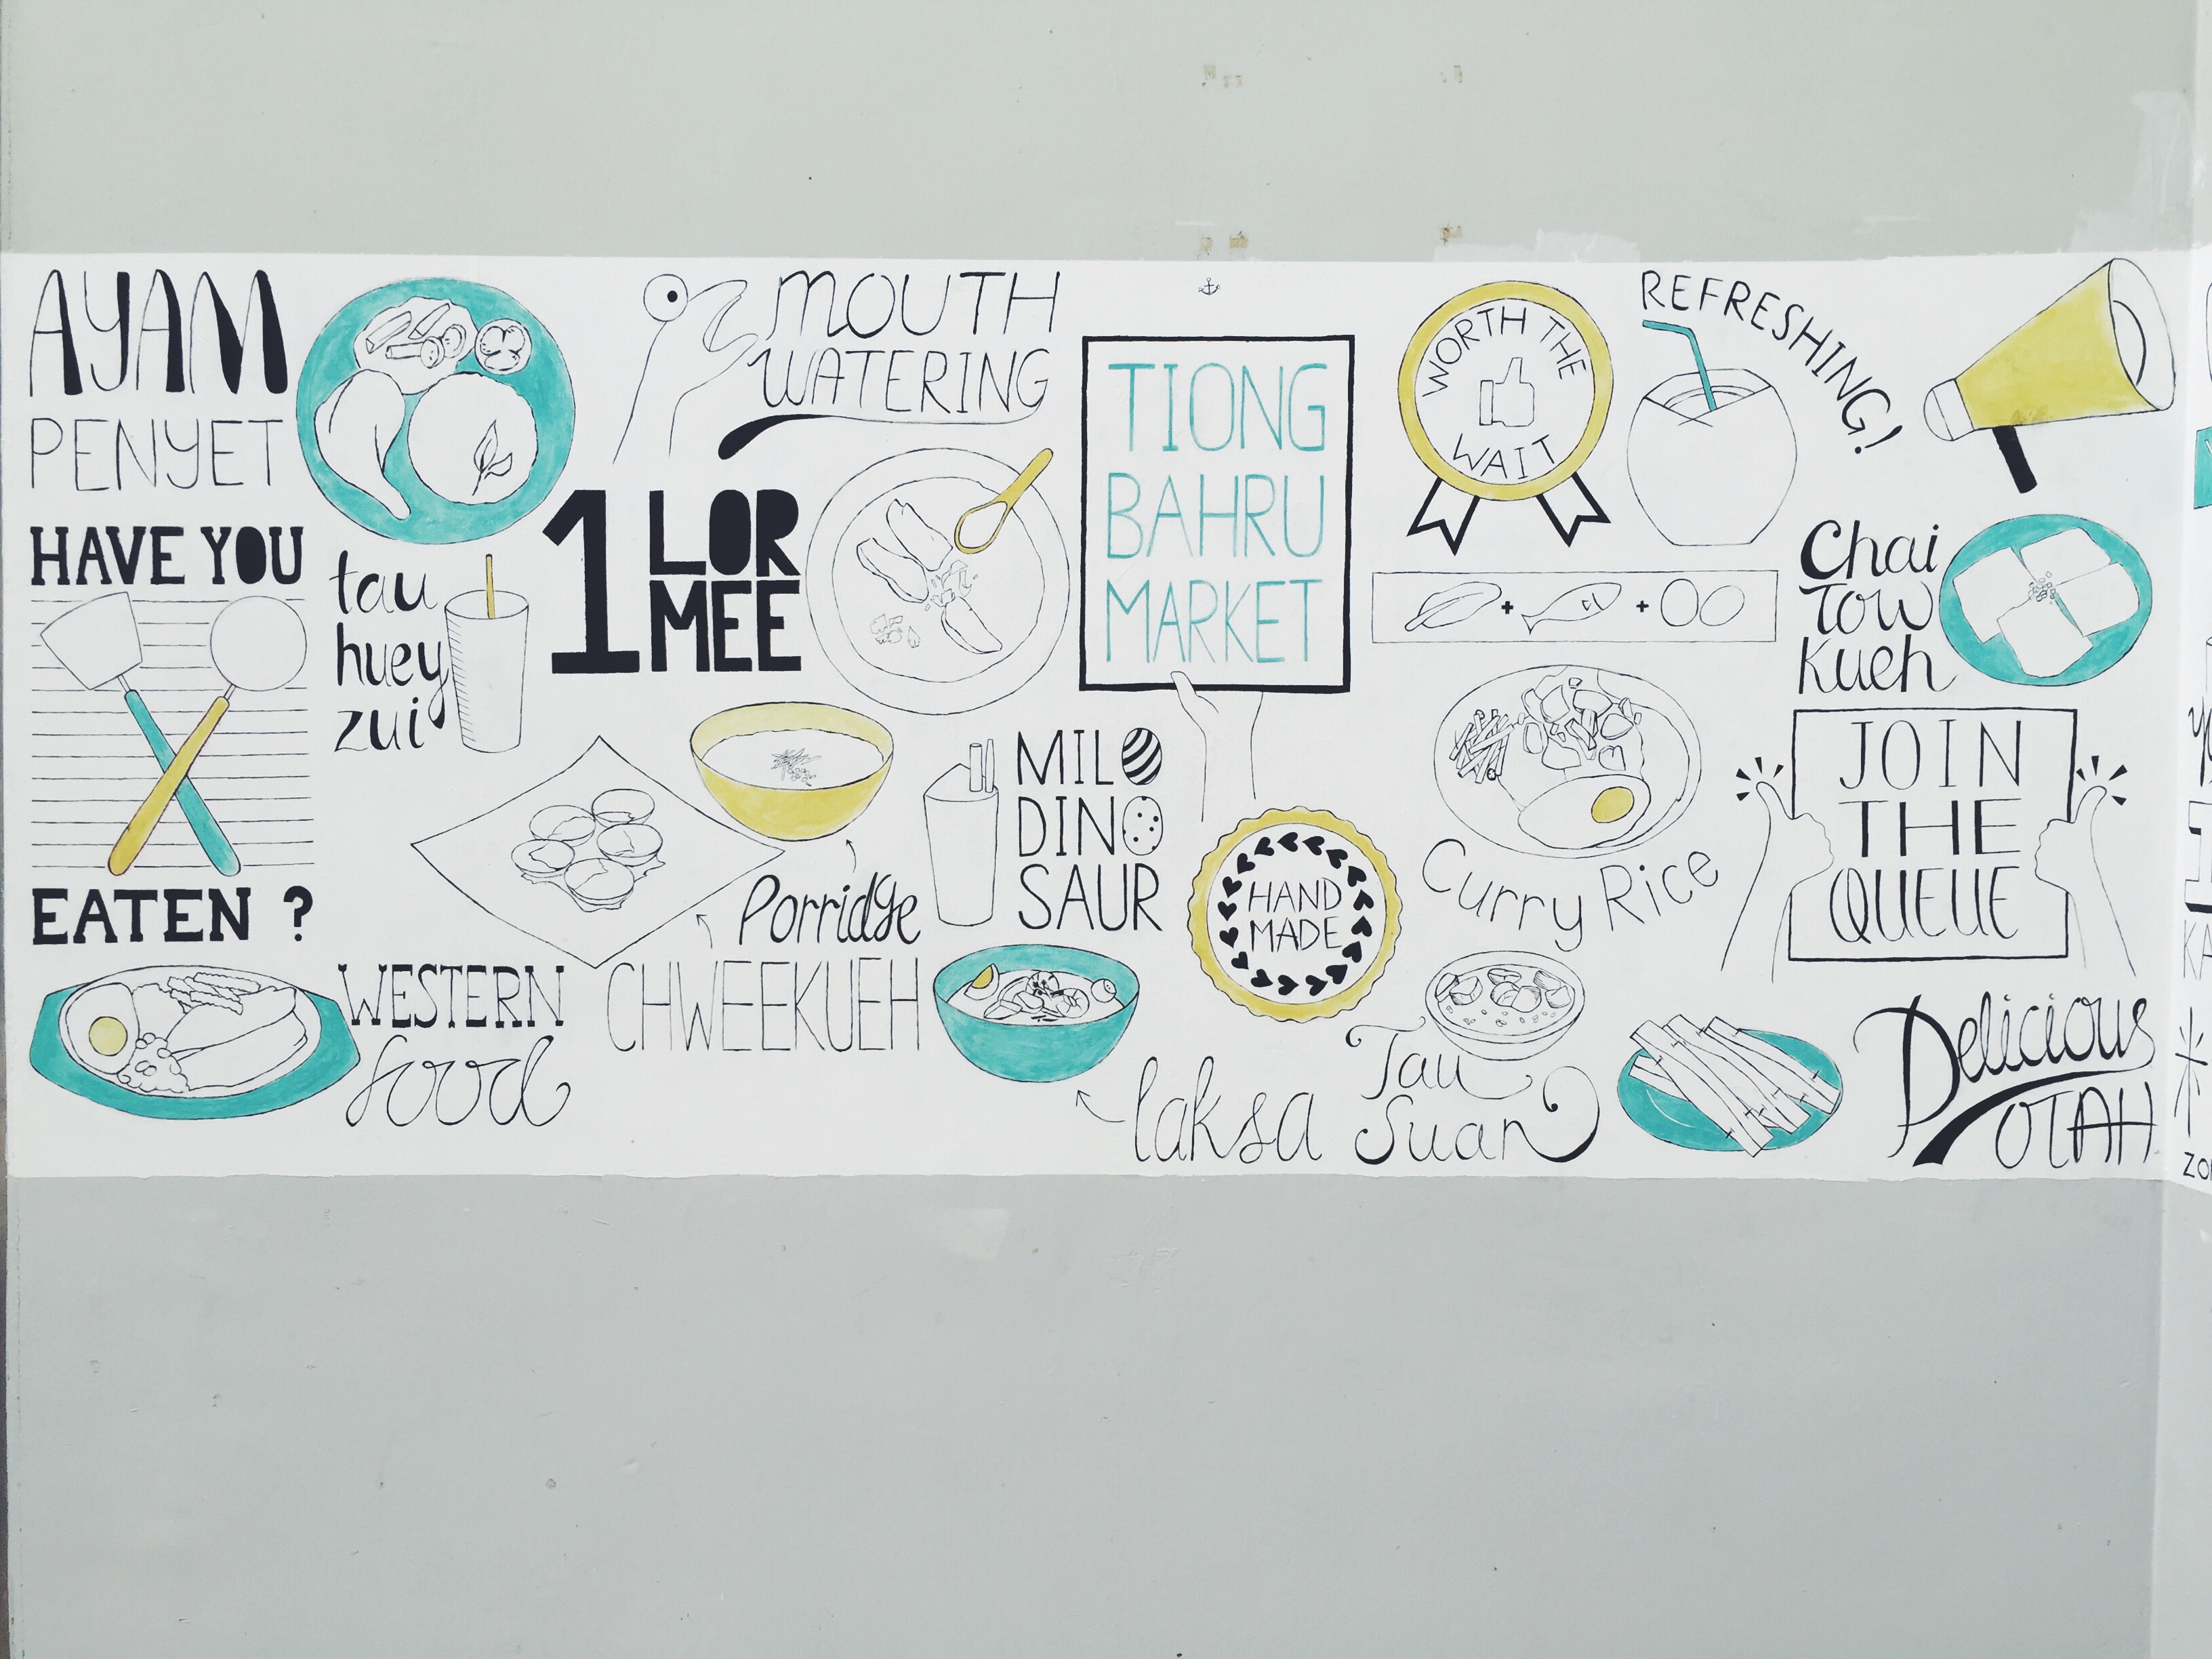 AYAM
PENYET
HAVE YOU
EATEN ?
WESTERN
food
tau
huey
zui
MOUTH
WATERING
1 LOR
MEE
Porridge
CHWEEKUEH
MILO
DINO
SAUR
laksa
TIONG
BAHRU
MARKET
HAND
MADE
WORTH THE
WAIT
REFRESHING!
Curry Rice
Tau
Suan
Chai
Tow
Kueh
JOIN
THE
QUEUE
Delicious
OTAH